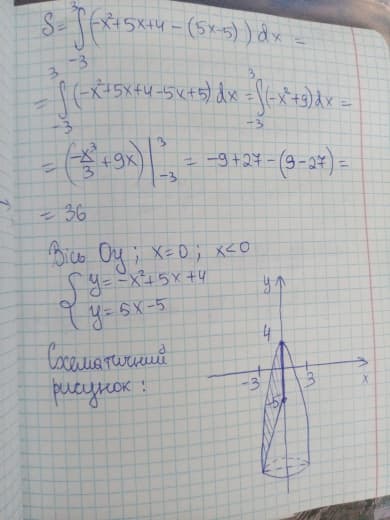 S = ∫₋₃³ (-x²+5x+4-(5x-5)) dx =
= ∫₋₃³ (-x²+5x+4-5x+5) dx = ∫₋₃³ (-x²+9) dx =
= (-x³/3 + 9x) |₋₃³ = -9+27-(9-27) =
= 36
Вісь Oy; x=0; x<0
{ y = -x²+5x+4
y = 5x-5
Схематичний
рисунок:
y
4
-3 3 x
-5